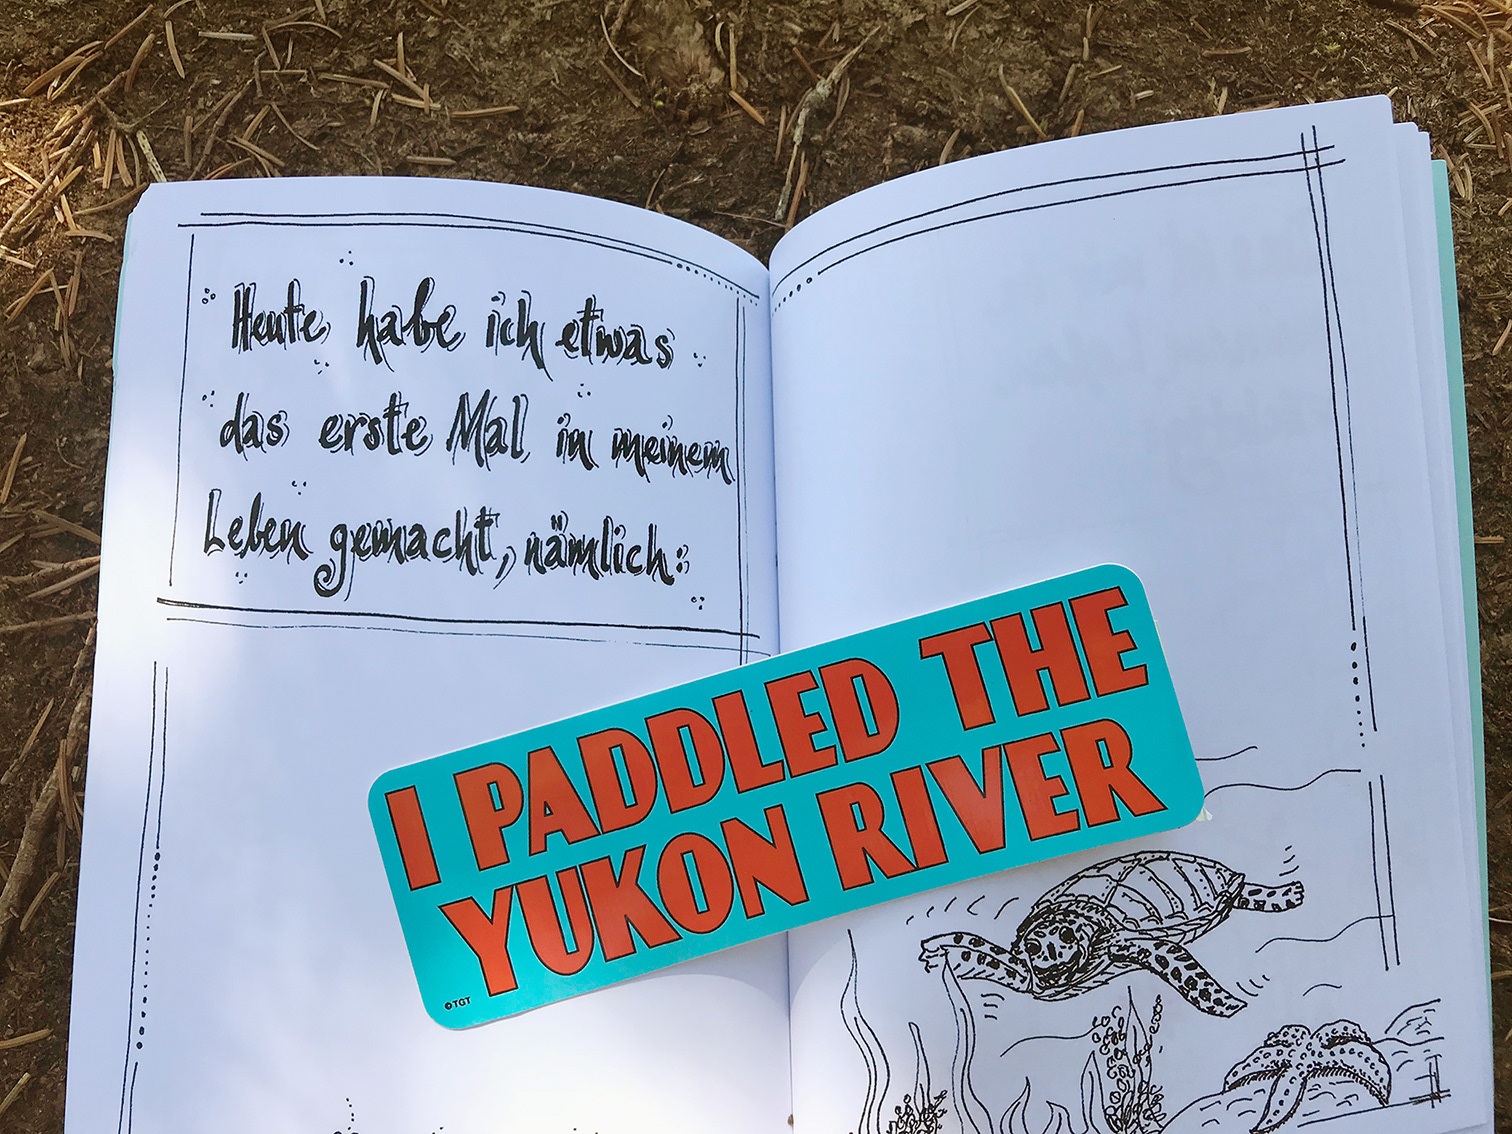 Heute habe ich etwas
das erste Mal in meinem
Leben gemacht, nämlich:
I PADDLED THE
YUKON RIVER
©TGT